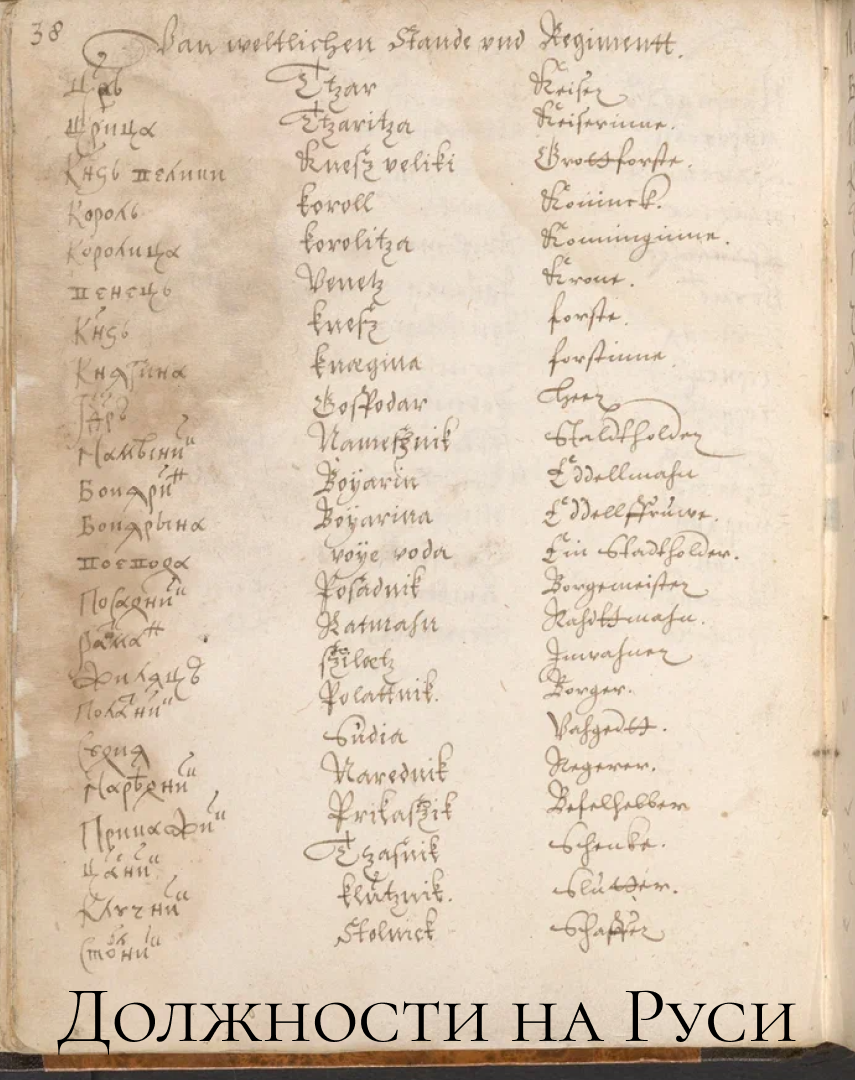 38
Van weltlichen Stande vnd Regimentt.
Црь Tzar Keiser
Црица Tzaritza Keiserinne.
Кнзь велики Knesz veliki Grottforste.
Король koroll Konninck.
Королица korolitza Konninginne.
венець Venetz Krone.
Кнзь knesz forste.
Княгина knægina forstinne.
Gospodar Heer
Namesznik Stadtholder
Бояри Boyarin Eddellmahn
Боярына Boyarina Eddellffruwe.
воевода voye voda Ein Stadtholder.
Посадни Posadnik Borgemeister
Ратма Ratmahn Rahdttmahn.
sziletz Inwahner
Полатни Polattnik. Borger.
Судия Sudia Vahgedtt.
Наредни Narednik Regerer.
Прикащи Prikaszik Befelhebber
Цашни Tzasnik Schenke.
Ключни klutznik. Slutter.
Столни Stolnick Schaffer
Должности на Руси